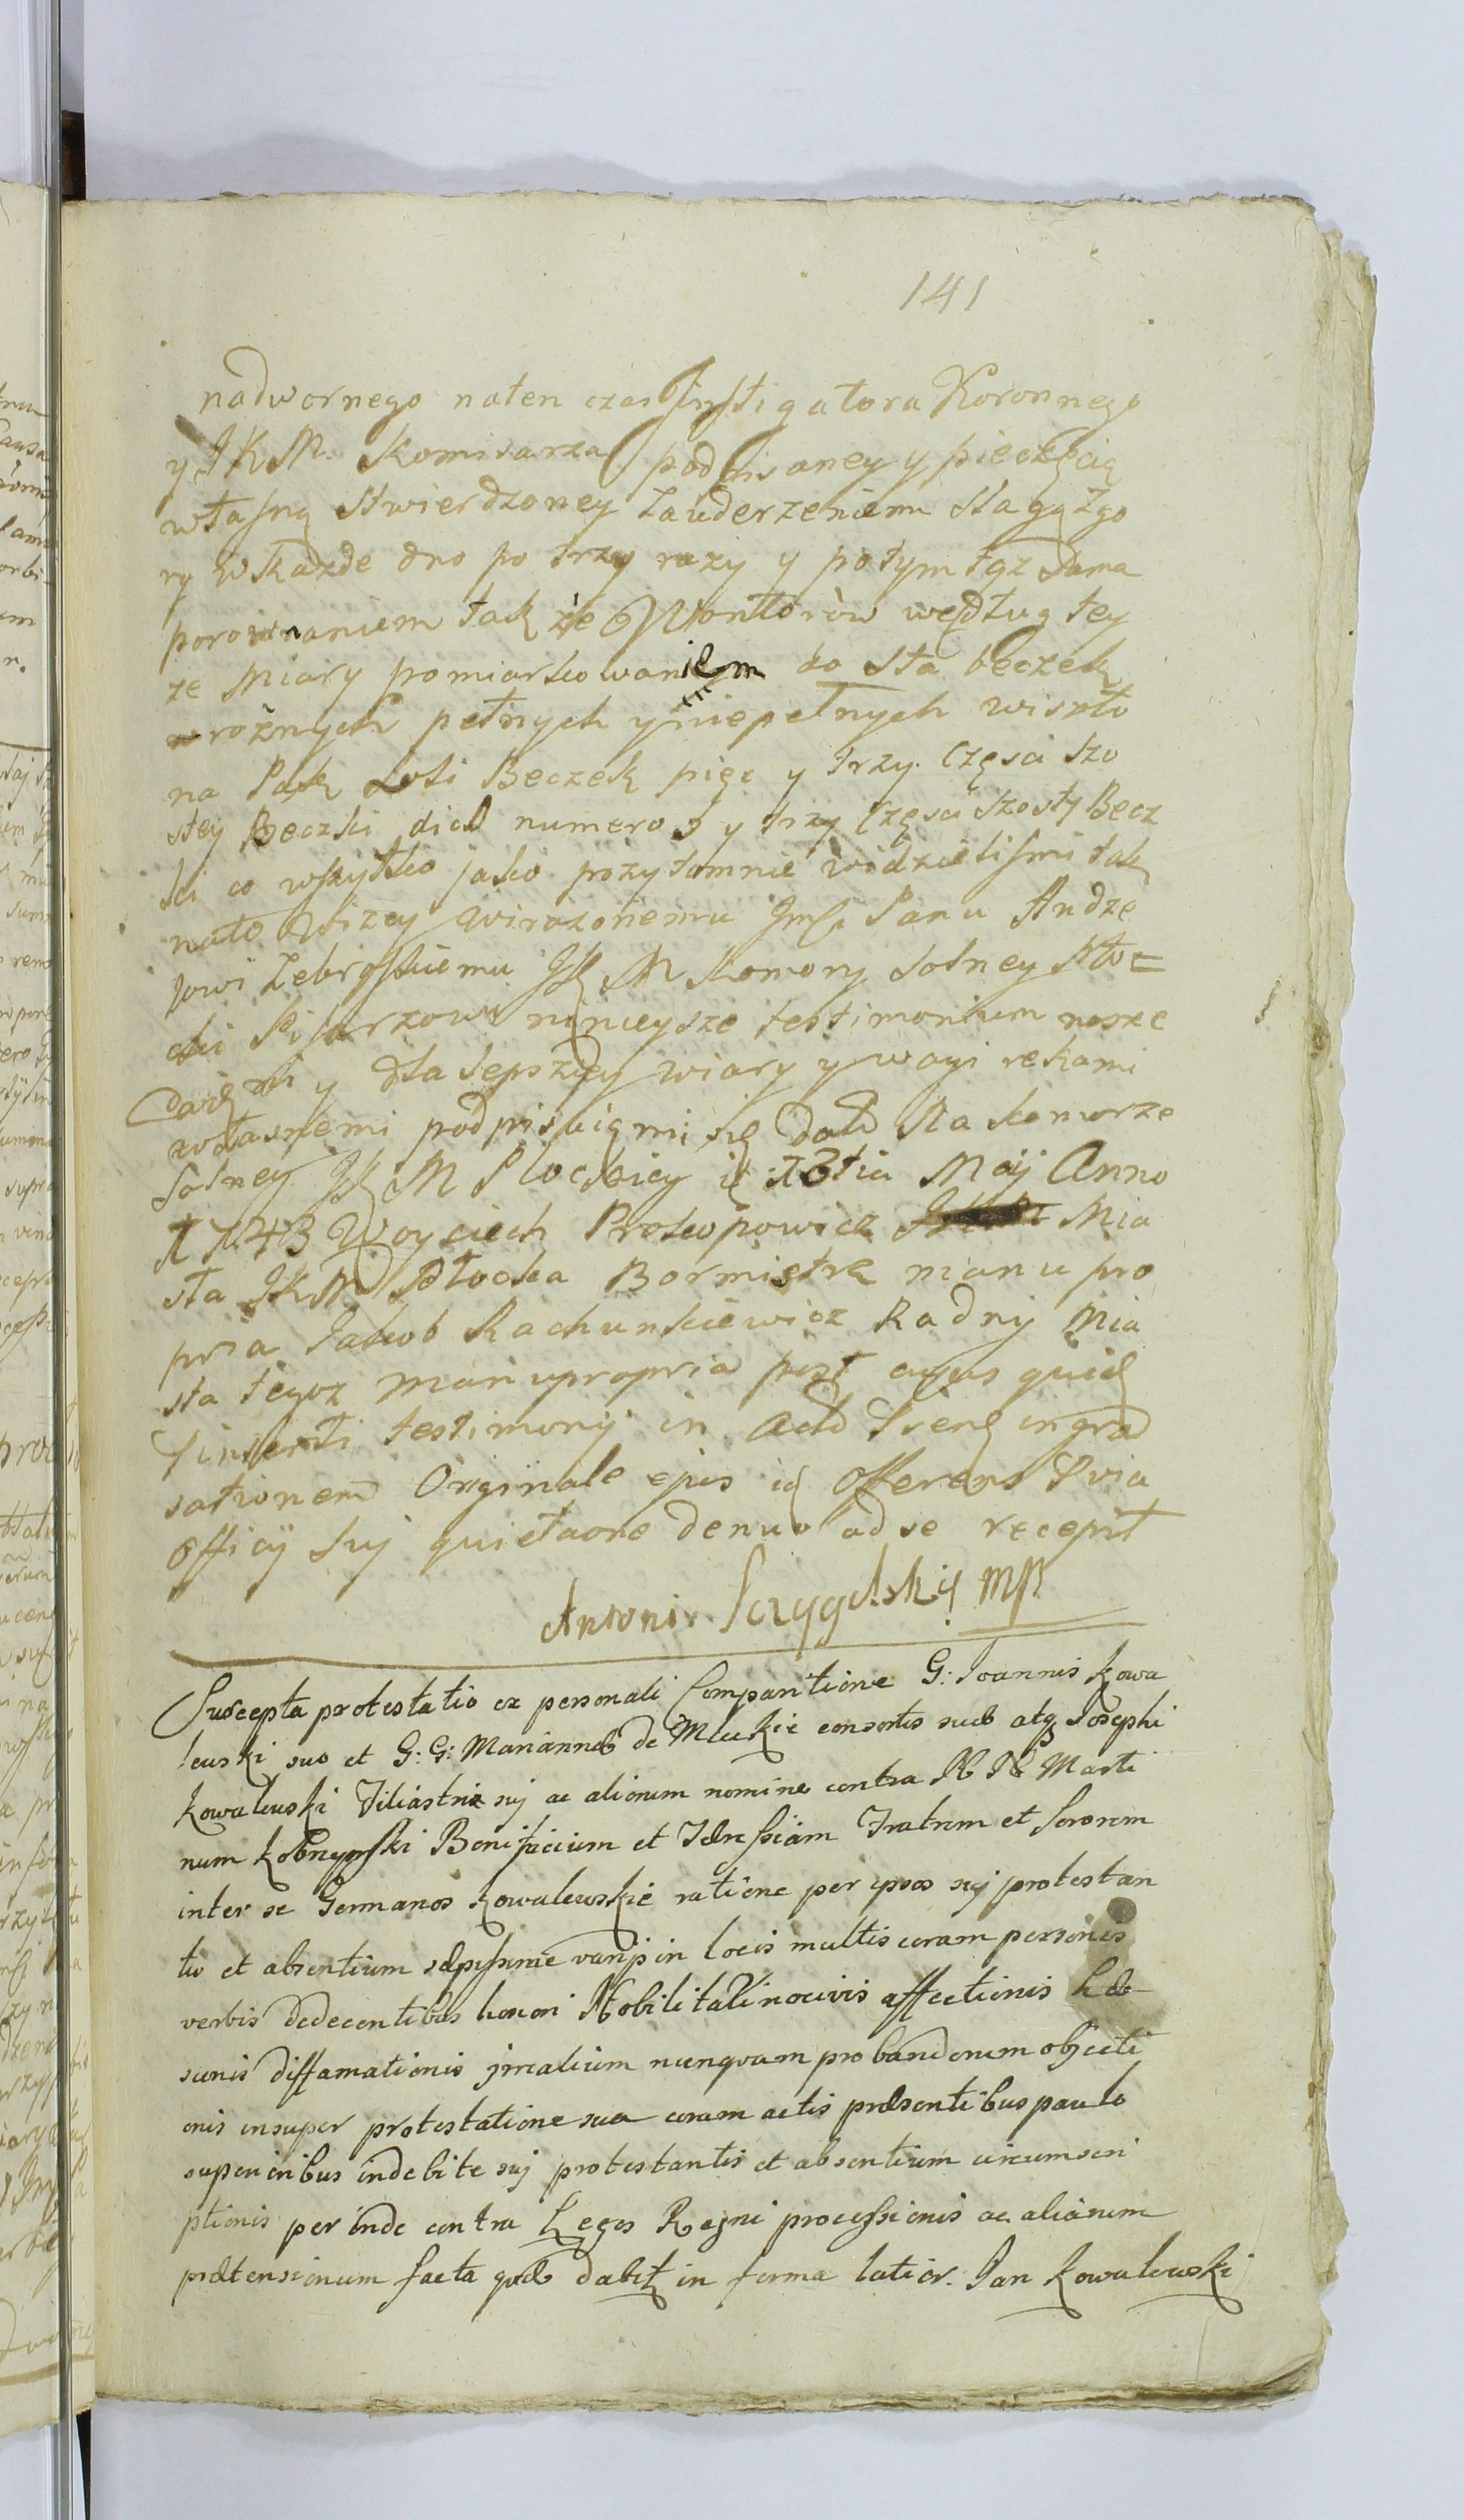 141
nadwornego naten czas Instigatora Koronnego
y JKM. Komisarza podpisaney y pieczęcią
własną stwierdzoney zauderzeniem stągą zgo
ry w każde dno po trzy razy y potym tąż sama
porownaniem tak że Wontorow według tey
ze Miary pomiarkowaniem do sta beczek
w rożnych pełnych y niepełnych wiszło
na Pak Soli Beczek pięc y trzy Częsci szo
stey Beczki dico numero 5 y trzy Częsci szosty Becz
ki co wszytko jako przytomnie widzielismi tak
nato Wizey wirazonemu Jmści Panu Andze
jowi Zebrosskiemu JK M Komory Solney Płoc
cki Pisarzowi ninieysze testimonium nasze
daię mi y dla lepszey wiary y wagi rekami
własnemi podpisuięmi się Datt Na Komorze
Solney JK M Plockiey d 13tia Maij Anno
1743 Woyciech Prokopowicz Mia
sta JKM Płocka Bormistrz manu pro
pria Jakob Rachunkiewicz Radny Mia
sta tegoz manupropria post cujus quid
inserti testimonij in Acta Pręng ingros
sationem Originale ejus id Offerens Pria
Officij Suj quietaone denuo ad se recepit
Antoni Sczygelski mp
Suscepta protestatio ex personali Comparitione G: Joannis Kowa
lewski suo et G: G: Mariannæ de Mlukie consortis suæ atq Josephi
Kowalewski Filiastri suj ac aliorum nomine contra NN Marti
num Kobnynski Bonifacium et Teressiam Fratrem et Sororem
inter se Germanos Kowalewskie ratione per ipsos suj protestan
tis et absentium sæpissime varijs in locis multis coram personis
verbis dedecentibus honori Nobilitati nocivis affectionis Læ
sionis diffamationis jrrealium nunquam probandorum objecti
onis insuper protestatione sua coram actis præsentibus paulo
superioribus indebite suj protestantis et absentium circumscri
ptionis perinde contra Leges Regni processionis ac aliarum
prætensionum facta quæ dabit in forma latior. Jan Kowalewski